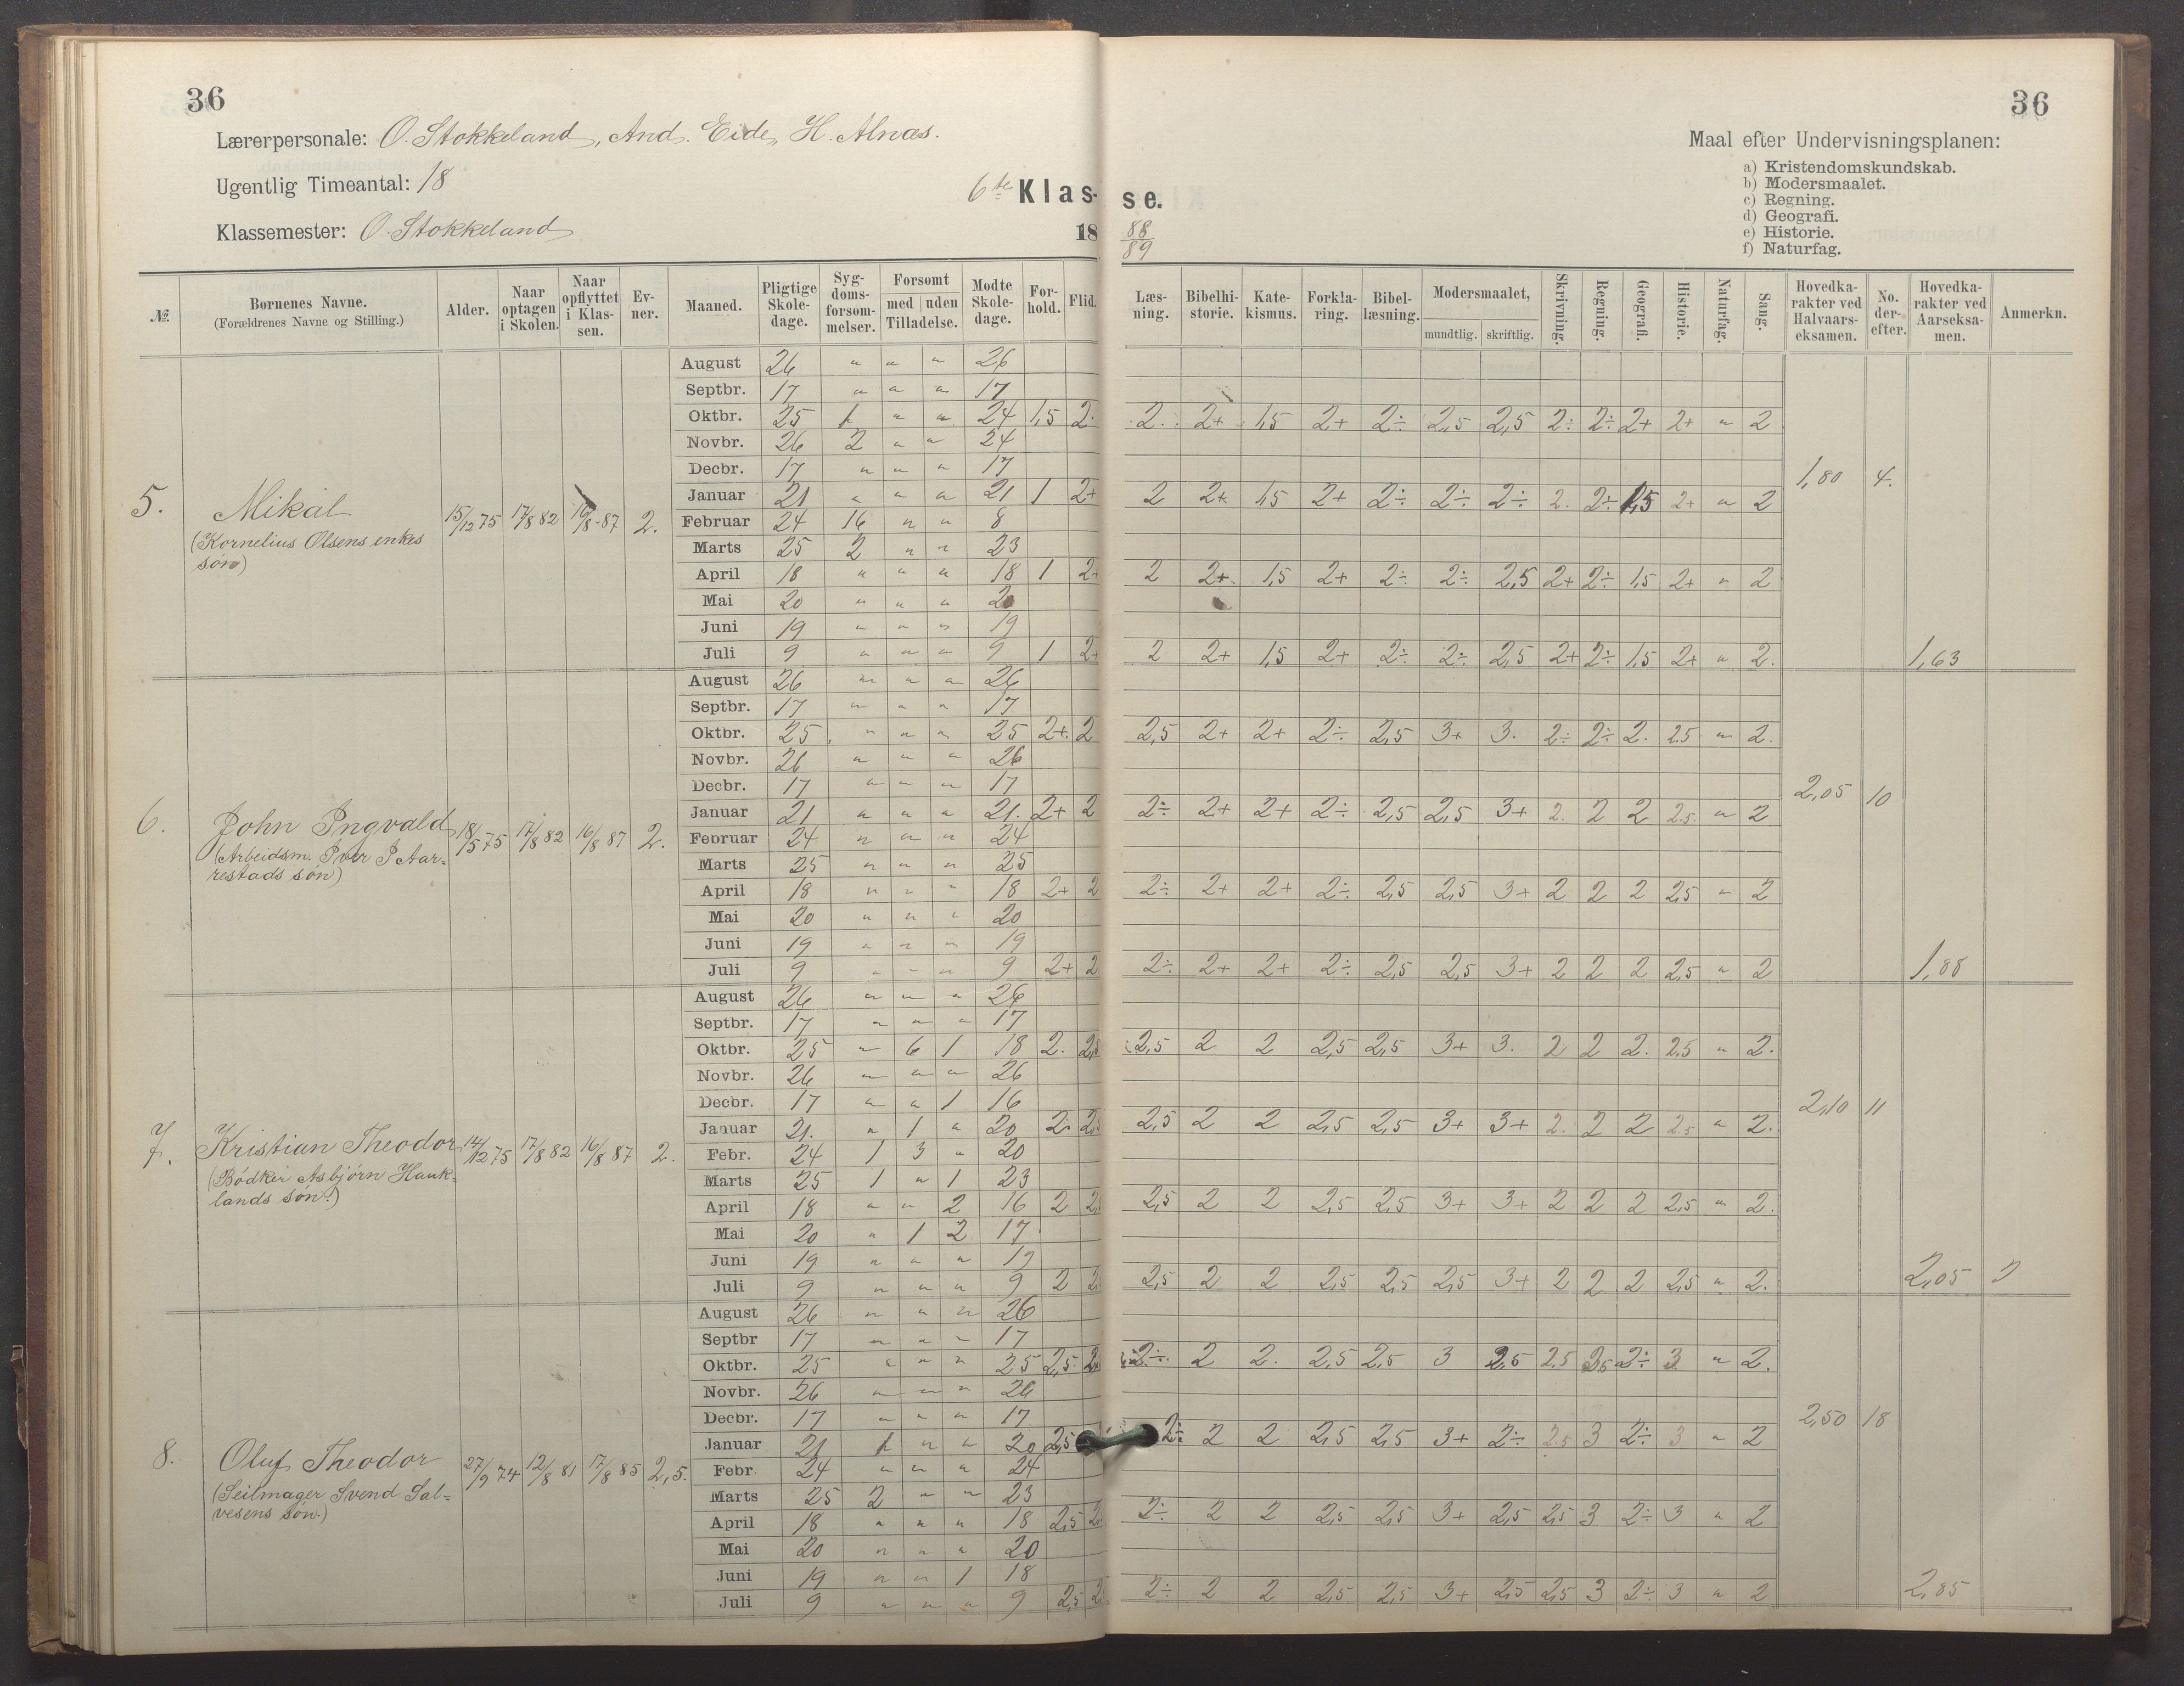 36
36
Lærerpersonale: O. Stokkeland, And. Eide, H. Alnæs.
Ugentlig Timeantal: 18
6te Klas- se.
Klassemester: O. Stokkeland
18 88/89
Maal efter Undervisningsplanen:
a) Kristendomskundskab.
b) Modersmaalet.
c) Regning.
d) Geografi.
e) Historie.
f) Naturfag.
№ | Børnenes Navne. (Forældrenes Navne og Stilling.) | Alder. | Naar optagen i Skolen. | Naar opflyttet i Klassen. | Evner. | Maaned. | Pligtige Skoledage. | Sygdomsforsømmelser. | Forsømt med Tilladelse. | uden | Mødte Skoledage. | Forhold. | Flid. | Læsning. | Bibelhistorie. | Katekismus. | Forklaring. | Bibellæsning. | Modersmaalet, mundtlig. | skriftlig. | Skrivning. | Regning. | Geografi. | Historie. | Naturfag. | Sang. | Hovedkarakter ved Halvaarseksamen. | No. derefter. | Hovedkarakter ved Aarseksamen. | Anmerkn.
5. Mikal 15/12 75 17/8 82 16/8 87 2.
(Kornelius Olsens enkes
søn)
August 26 " " " 26
Septbr. 17 " " " 17
Oktbr. 25 1 " " 24 1,5 2. 2. 2+ 1,5 2+ 2÷ 2,5 2,5 2÷ 2÷ 2+ 2+ " 2
Novbr. 26 2 " " 24
Decbr. 17 " " " 17
1,80 4.
Januar 21 " " " 21 1 2+ 2 2+ 1,5 2+ 2÷ 2÷ 2÷ 2. 2÷ 1,5 2+ " 2
Februar 24 16 " " 8
Marts 25 2 " " 23
April 18 " " " 18 1 2+ 2 2+. 1,5 2+ 2÷ 2÷ 2,5 2+ 2÷ 1,5 2+ " 2
Mai 20 " " " 20
Juni 19 " " " 19
Juli 9 " " " 9 1 2+ 2 2+ 1,5 2+ 2÷ 2÷ 2,5 2+ 2÷ 1,5 2+ " 2. 1,63
6. John Ingvald 18/5 75 17/8 82 16/8 87 2.
(Arbeidsm. Iver I Aar-
restads søn)
August 26 " " " 26
Septbr. 17 " " " 17
Oktbr. 25 " " " 25 2+. 2 2,5 2+ 2+ 2÷ 2,5 3+ 3. 2÷ 2÷ 2. 2.5 " 2.
Novbr. 26 " " " 26
Decbr. 17 " " " 17
2,05 10
Januar 21 " " " 21. 2+ 2 2÷ 2+ 2+ 2÷ 2,5 2,5 3+ 2. 2 2 2.5 " 2
Februar 24 " " " 24
Marts 25 " " " 25
April 18 " " " 18 2+ 2 2÷ 2+ 2+ 2÷ 2,5 2,5 3+ 2 2 2 2,5 " 2
Mai 20 " " " 20
Juni 19 " " " 19
Juli 9 " " " 9 2+ 2 2÷ 2+ 2+ 2÷ 2,5 2,5 3+ 2 2 2 2,5 " 2 1,88
7. Kristian Theodor 14/12 75 17/8 82 16/8 87 2.
(Bødker Asbjørn Hauk-
lands søn.)
August 26 " " " 26
Septbr. 17 " " " 17
Oktbr. 25 " 6 1 18 2. 2,5 2,5 2 2 2,5 2,5 3+ 3. 2 2 2. 2.5 " 2.
Novbr. 26 " " " 26
Decbr. 17 " " 1 16
2,10 11
Januar 21. " 1 " 20 2. 2,5 2,5 2 2 2,5 2,5 3+ 3+ 2. 2 2 2.5 " 2.
Febr. 24 1 3 " 20
Marts 25 1 " 1 23
April 18 " " 2 16 2 2,5 2 2 2,5 2,5 3+ 3+ 2 2 2 2,5 " 2.
Mai 20 " 1 2 17
Juni 19 " " " 19
Juli 9 " " " 9 2 2 2,5 2 2 2,5 2,5 2,5 3+ 2 2 2 2,5 " 2. 2,05
8. Oluf Theodor 27/9 74 12/8 81 17/8 85 2,5.
(Seilmager Svend Sal-
vesens søn.)
August 26 " " " 26
Septbr 17 " " " 17
Oktbr. 25 " " " 25 2,5 2÷. 2 2. 2,5 2,5 3 2,5 2.5 2,5 2÷ 3 " 2.
Novbr. 26 " " " 26
Decbr. 17 " " " 17
2,50 18
Januar 21 1 " " 20 2,5 2÷ 2 2 2,5 2,5 3+ 2÷ 2.5 3 2÷ 3 " 2
Febr. 24 " " " 24
Marts 25 2 " " 23
April 18 " " " 18 2,5 2÷ 2 2 2,5 2,5 3+ 2,5 2,5 3 2÷ 3 " 2
Mai 20 " " " 20
Juni 19 " " 1 18
Juli 9 " " " 9 2,5 2÷ 2 2 2,5 2,5 3+ 2,5 2,5 3 2÷ 3 " 2 2,85